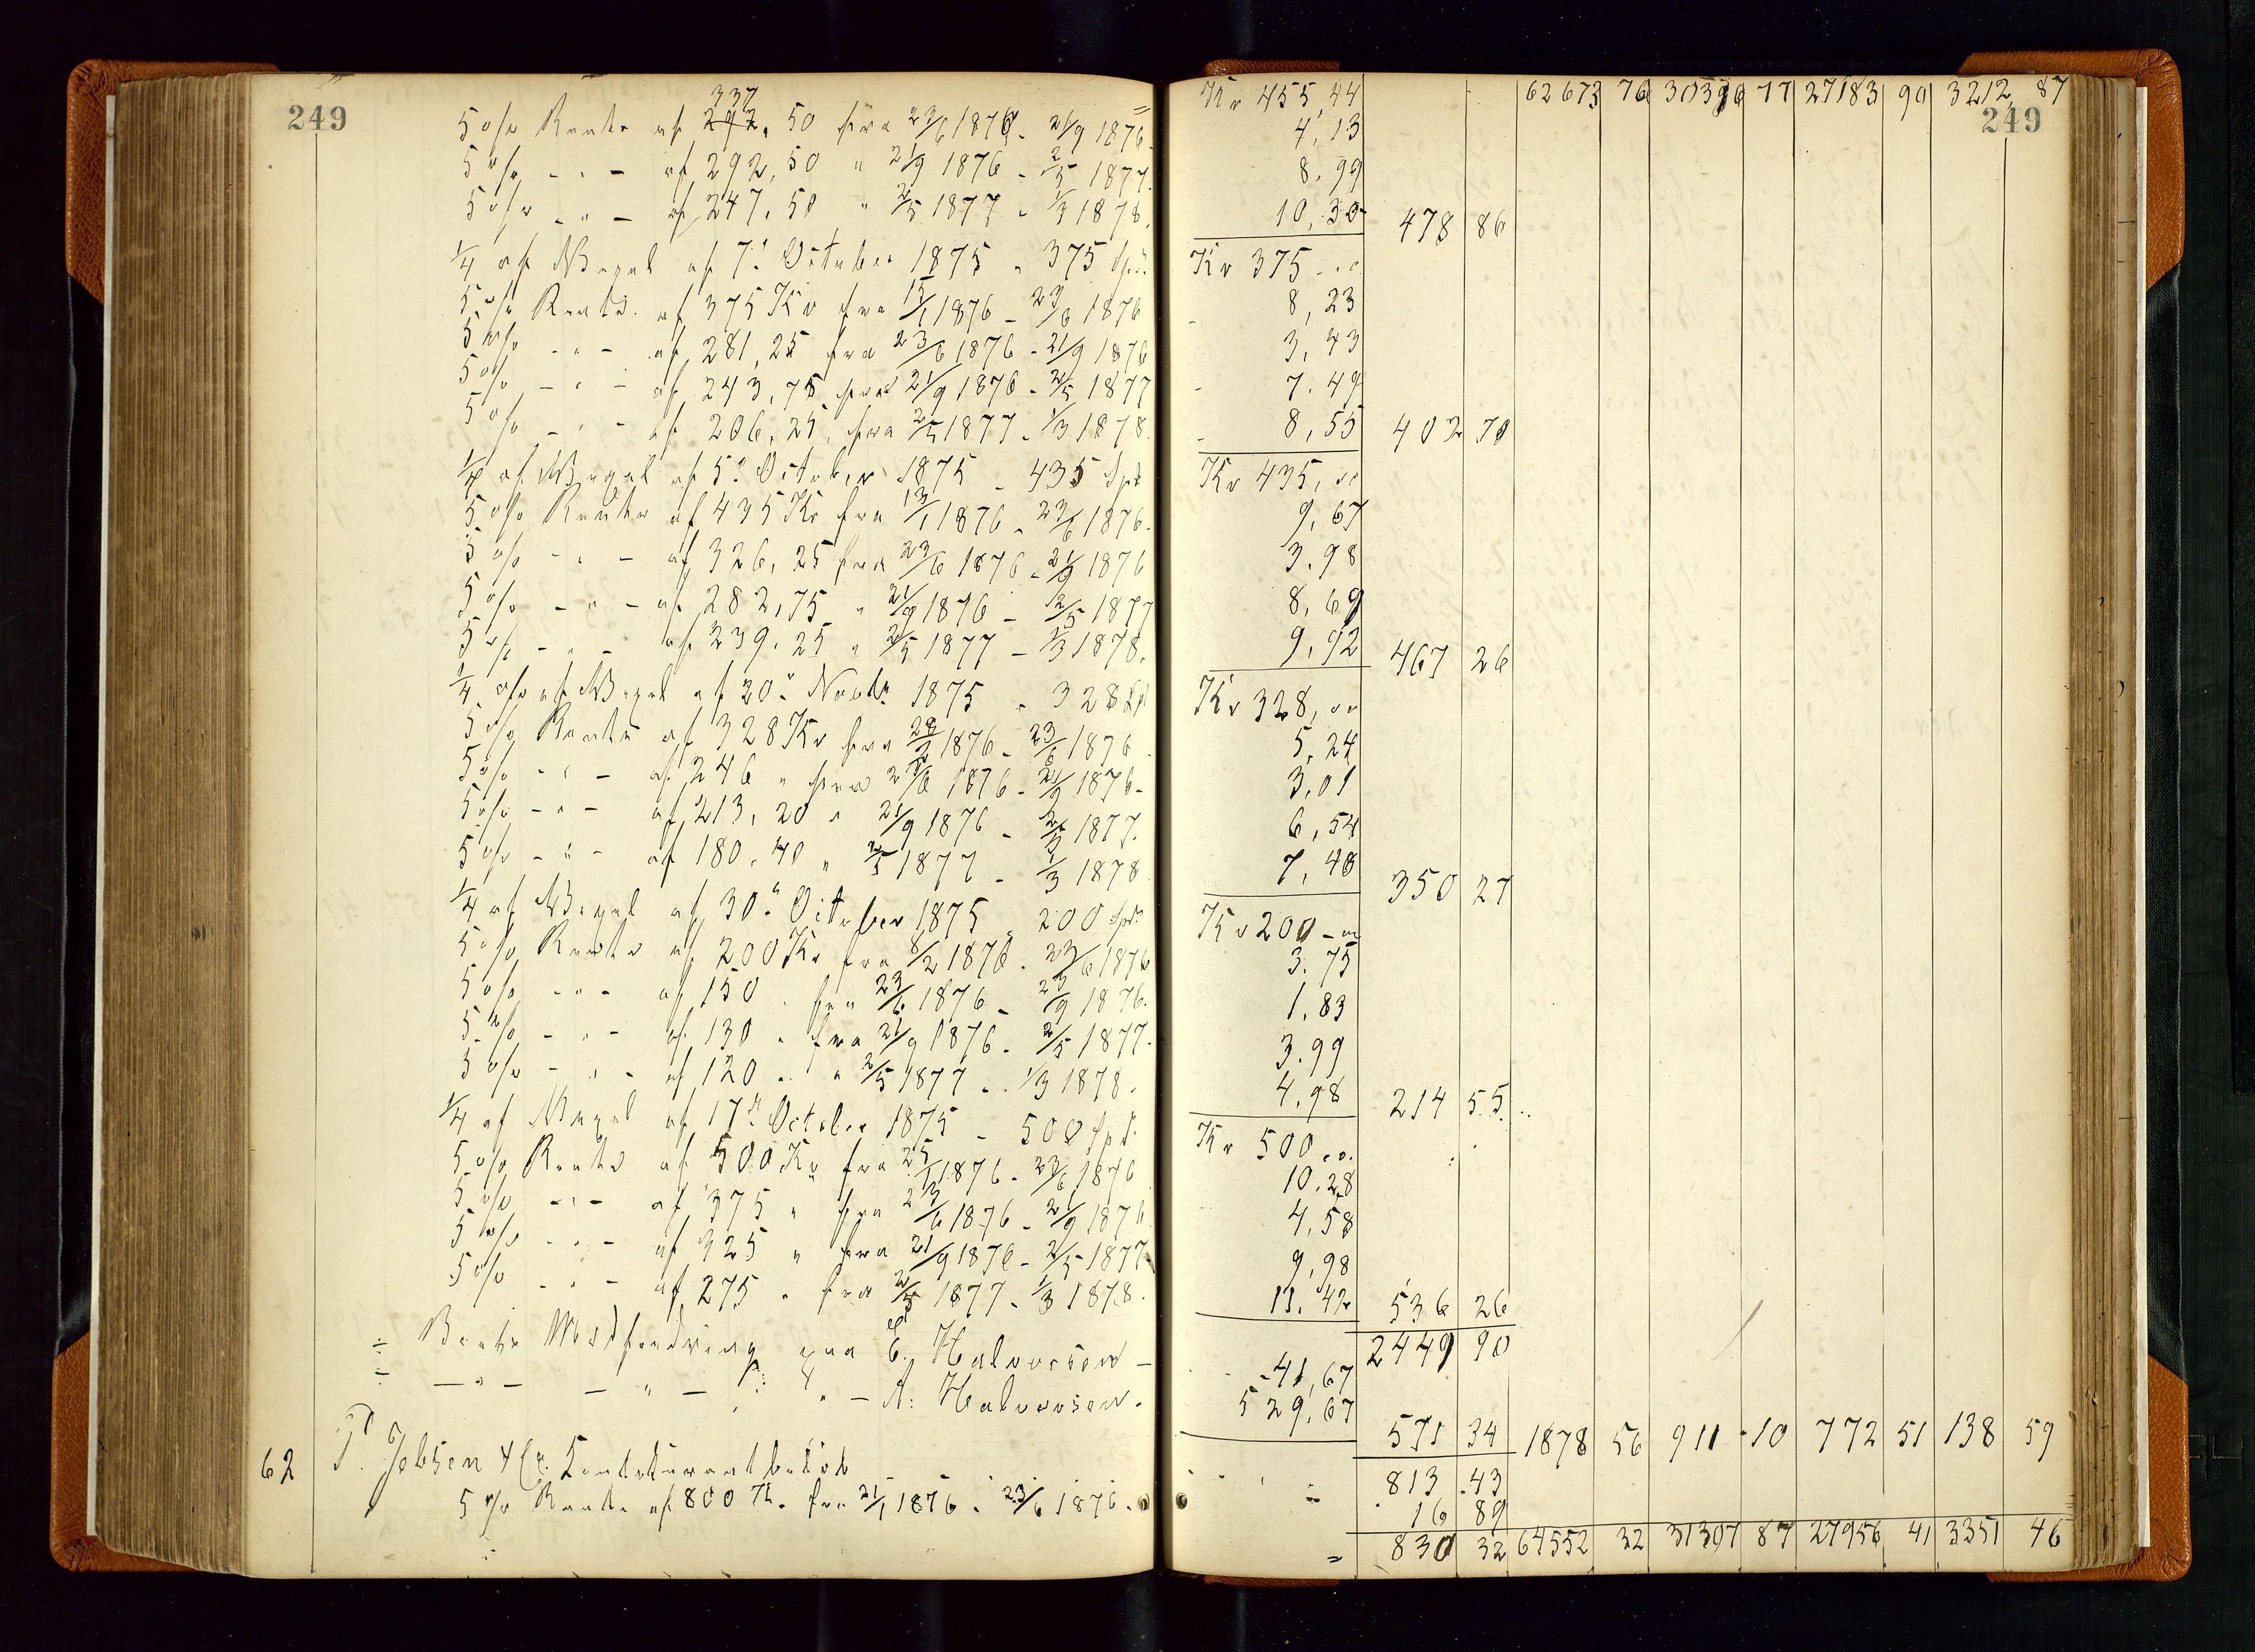 249
337
5 o/o Rente af 292,50 fra 23/6 1876 - 21/9 1876 = Kr 455,44 62673 76 30396 77 27183 90 3212 87
249
4,13
5 o/o - " - af 292,50 " 21/9 1876 - 2/5 1877. 8,99
5 o/o - " - af 247,50 " 2/5 1877 - 1/3 1878. 10,30 478 86
1/4 af Vexel af 7d October 1875 - 375 Spd. Kr 375 - "
5 o/o Rente af 375 Kr fra 15/1 1876 - 23/6 1876 8,23
5 o/o - " - af 281,25 fra 23/6 1876 - 21/9 1876 3,43
5 o/o - " - af 243,75 fra 21/9 1876 - 2/5 1877 7.49
5 o/o - " - af 206,25 fra 2/5 1877 - 1/3 1878. 8,55 402 70
1/4 af Vexel af 5d October 1875 - 435 Spd Kr 435, "
5 o/o Rente af 435 Kr fra 13/1 1876 - 23/6 1876. 9,67
5 o/o - " - af 326,25 fra 23/6 1876 - 21/9 1876 3.98
5 o/o - " - af 282,75 " 21/9 1876 - 2/5 1877 8,69
5 o/o - " - af 239,25 " 2/5 1877 - 1/3 1878. 9,92 467 26
1/4 af Vexel af 20d Novbr 1875 - 328 Sp Kr 328, "
5 o/o Rente af 328 Kr fra 28/2 1876 - 23/6 1876 5,24
5 o/o - " - af 246 " fra 23/6 1876 - 21/9 1876 - 3,01
5 o/o - " - af 213,20 " 21/9 1876 - 2/5 1877. 6,54
5 o/o - " - af 180,40 " 2/5 1877 - 1/3 1878 7,48 350 27
1/4 af Vexel af 30d October 1875 - 200 Spd. Kr 200 - "
5 o/o Rente af 200 Kr fra 8/2 1876 - 23/6 1876 3.75
5 o/o - " - af 150 " fra 23/6 1876 - 23/9 1876. 1.83
5 o/o - " - af 130 " fra 21/9 1876 - 2/5 1877. 3.99
5 o/o - " - af 120 " " 2/5 1877 - 1/3 1878. 4,98 214 55
1/4 af Vexel af 17d October 1875 - 500 Spd. Kr 500 "
5 o/o Rente af 500 Kr fra 25/1 1876 - 23/6 1876 10.28
5 o/o - " - af 375 " fra 23/6 1876 - 21/9 1876 4,58
5 o/o - " - af 325 " fra 21/9 1876 - 2/5 1877 9,98
5 o/o - " - af 275 " fra 2/5 1877 - 1/3 1878. 11.42 536 26
2449 90
÷ Bents Modfordring paa E. Halvorsen - 41,67
÷ - " - - " - " - A. Halvorsen. 529,67 571 34 1878 56 911 10 772 51 138 59
62 P. Jebsen & Co. Contocurantbeløb 813 43
5 o/o Rente af 800 Kr. fra 21/1 1876 - 23/6 1876. 16 89
= 830 32 64552 32 31307 87 27956 41 3351 46